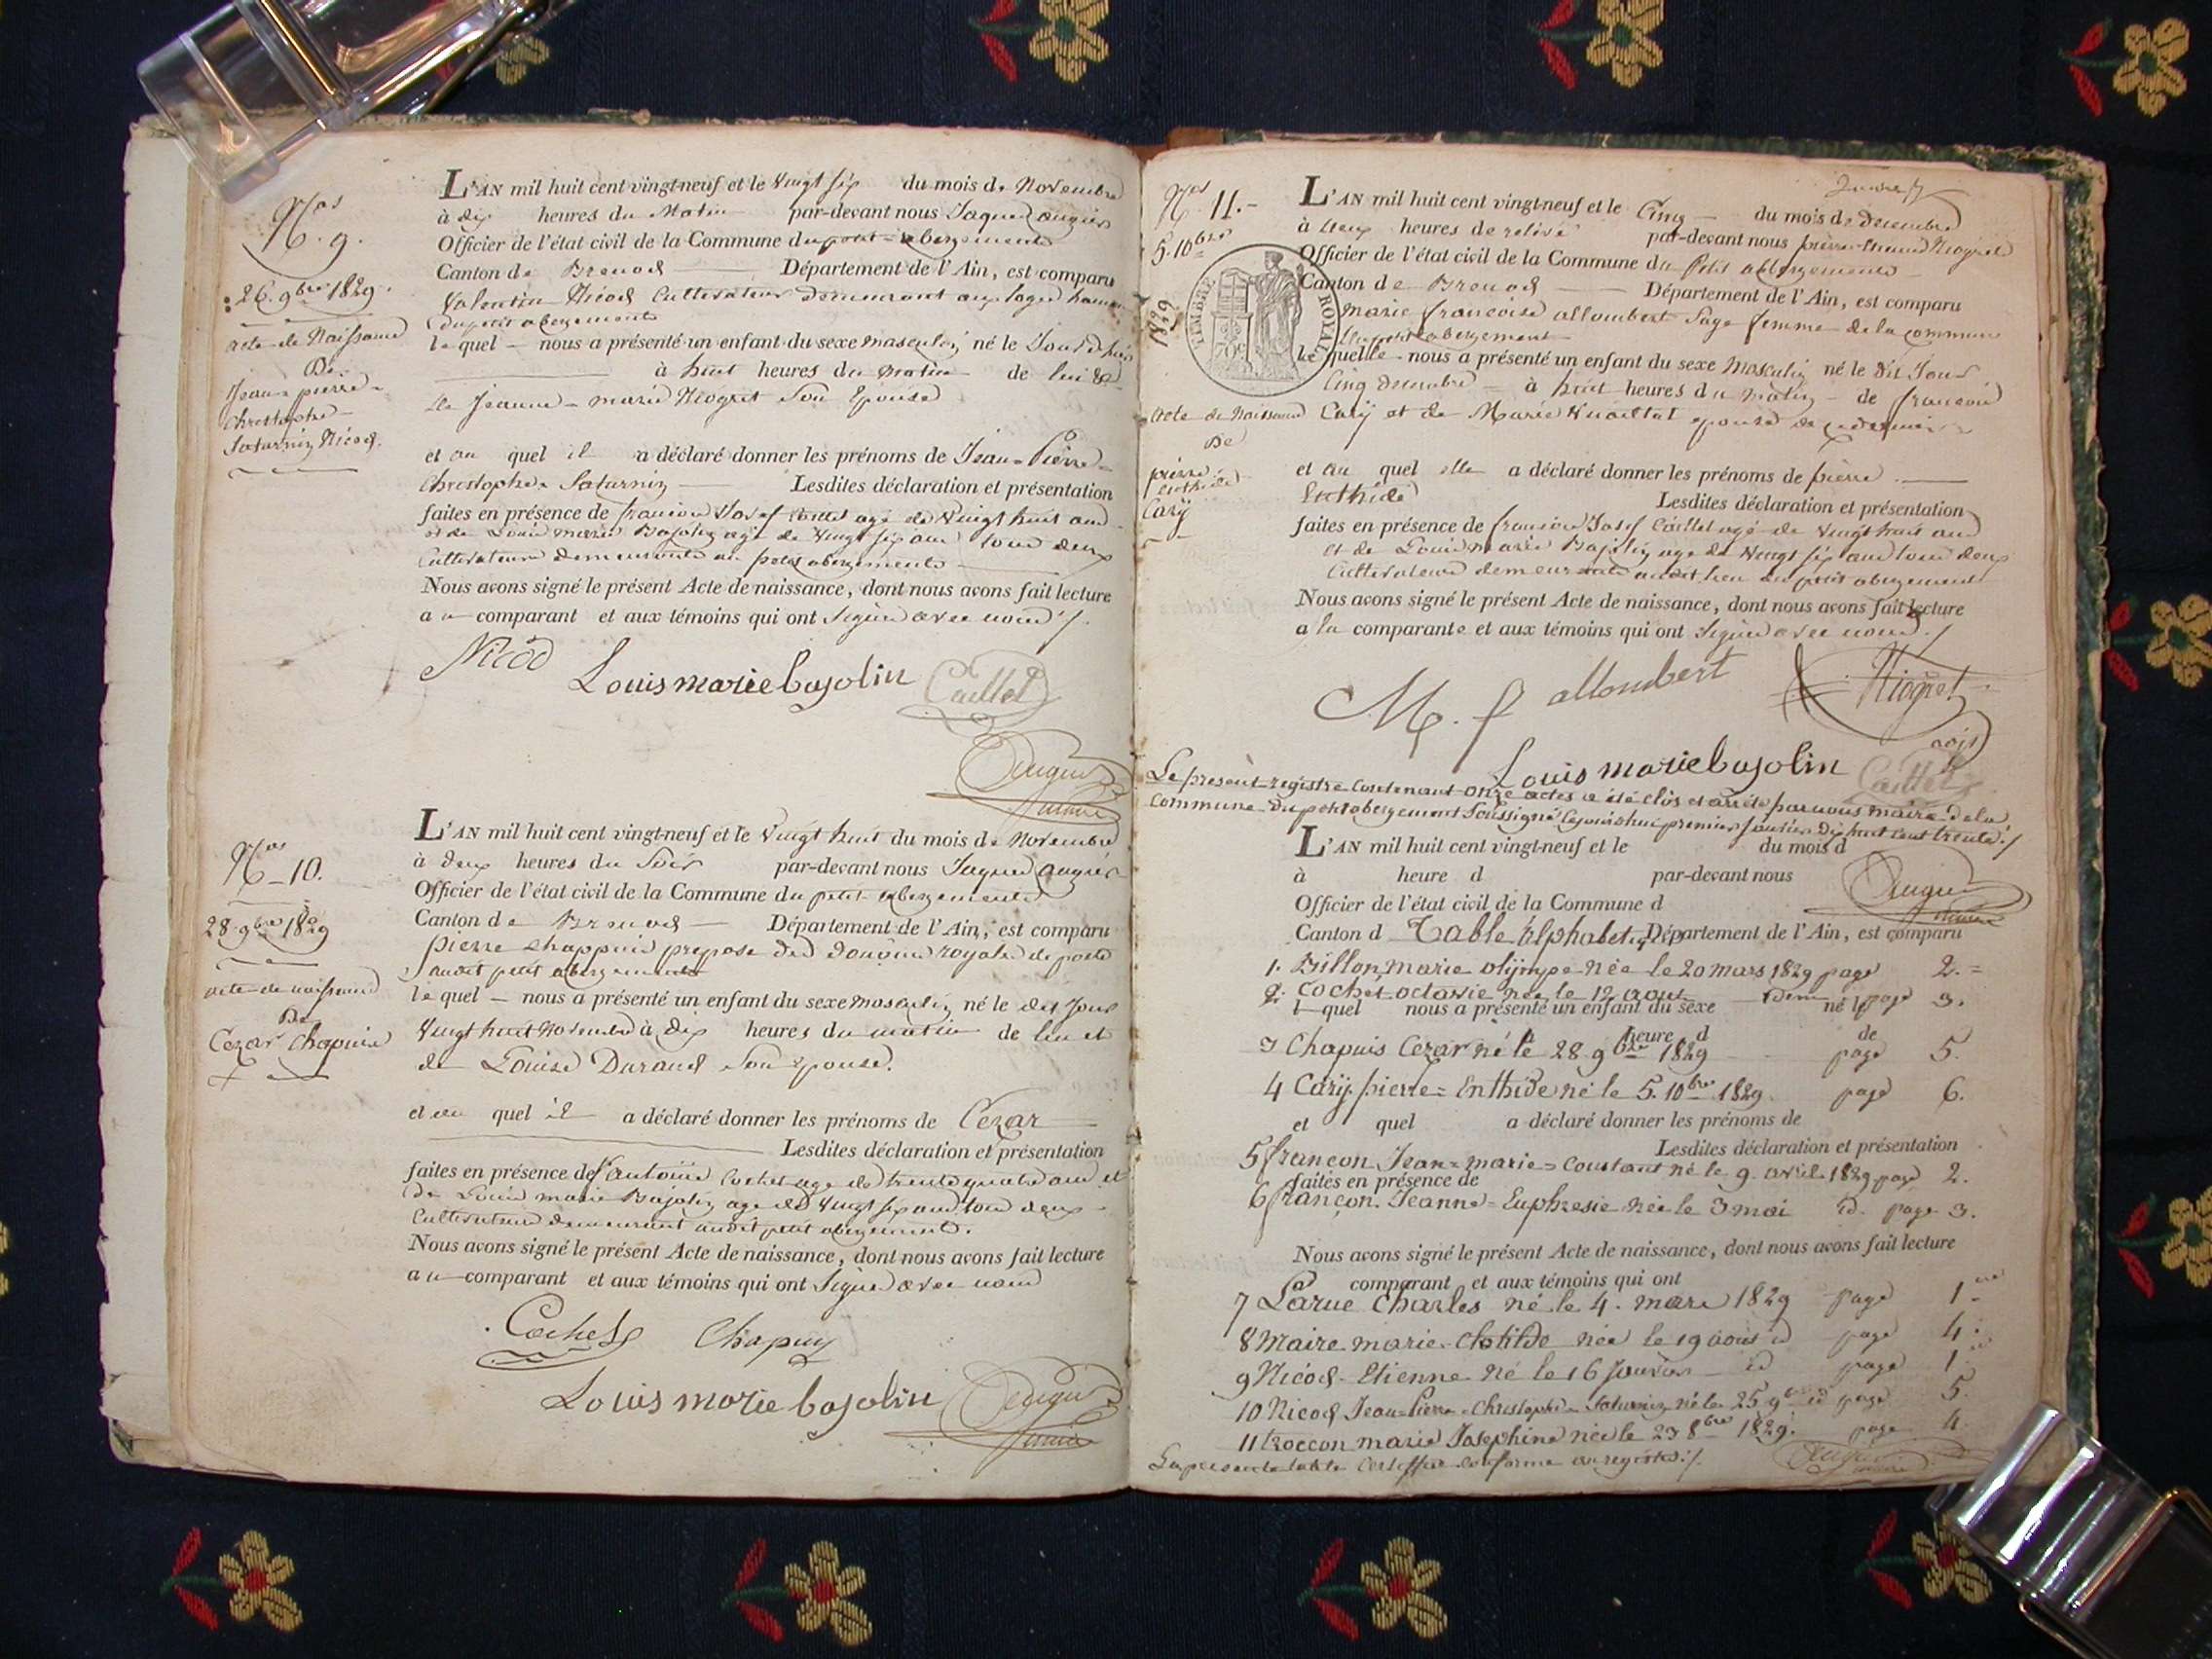 Nos 9.
26. 9bre 1829.
acte de Naissance
De
Jean-pierre-
christophe-
Saturnin Nicod.
L'AN mil huit cent vingt-neuf et le vingt six du mois de Novembre
à dix heures du Matin par-devant nous Jaques augier
Officier de l'état civil de la Commune du petit-abergement
Canton de Brenod Département de l'Ain, est comparu
Valentin Nicod Cultivateur demeurant aux loges hameau
du petit abergement
lequel nous a présenté un enfant du sexe masculin né le Jour d'hier
à huit heures du matin de lui &
de Jeanne-marie Niogret Son Epouse
et au quel il a déclaré donner les prénoms de Jean-Pierre-
Christophe Saturnin Lesdites déclaration et présentation
faites en présence de francois Josef Caillet agé de Vingt huit ans
et de Louis marie Bajolin agé de Vingt six ans tous deux
Cultivateurs demeurants au petit abergement
Nous avons signé le présent Acte de naissance, dont nous avons fait lecture
au comparant et aux témoins qui ont Signés avec nous ./.
Nicod Louis marie bajolin Caillet
Augier
maire
Nos 10.
28. 9bre 1829
acte de naissance
De
Cezar Chapuis
L'AN mil huit cent vingt-neuf et le Vingt huit du mois de Novembre
à deux heures du Soir par-devant nous Jaques augier
Officier de l'état civil de la Commune du petit-abergement
Canton de Brenod Département de l'Ain, est comparu
pierre chappuis préposé des douanes royales de poste
audit petit abergement
lequel nous a présenté un enfant du sexe masculin né le dit Jour
Vingt huit Novembre à dix heures du matin de lui et
de Louise Durand Son epouse.
et au quel il a déclaré donner les prénoms de Cezar
Lesdites déclaration et présentation
faites en présence de antoine Cochet agé de trente quatre ans et
de Louis marie Bajolin agé de Vingt six ans tous deux
Cultivateurs demeurant audit petit abergement.
Nous avons signé le présent Acte de naissance, dont nous avons fait lecture
au comparant et aux témoins qui ont Signés avec nous
Cochet Chapuy
Louis marie bajolin Augier
maire
Nos 11.
5. 10bre
1829
TIMBRE ROYAL
acte de Naissance
De
pierre
Enthide
Carÿ
L'AN mil huit cent vingt-neuf et le Cinq du mois de decembre
à deux heures de relevé par-devant nous pierre Niogret
Officier de l'état civil de la Commune du Petit abergement
Canton de Brenod Département de l'Ain, est comparu
marie francoise allombert Sage femme de la commune
du petit abergement
lequelle nous a présenté un enfant du sexe Masculin né le dit Jour
Cinq decembre à huit heures du matin de francois
Carÿ et de Marie epouse de ce dernier
et au quel elle a déclaré donner les prénoms de pierre
Enthide Lesdites déclaration et présentation
faites en présence de francois Josef Caillet agé de Vingt huit ans
et de Louis marie Bajolin agé de Vingt six ans tous deux
Cultivateurs demeurants audit lieu du petit abergement
Nous avons signé le présent Acte de naissance, dont nous avons fait lecture
a la comparante et aux témoins qui ont Signés avec nous ./
M. f allombert Niogret
adjt
Louis marie bajolin Caillet
Le présent registre contenant onze actes a été clos et arrêté par nous maire de la
Commune du petit abergement Soussigné Cejourdhui premier Janvier dix huit cent trente ./
L'AN mil huit cent vingt-neuf et le du mois d
à heure d par-devant nous
Augier
maire
Officier de l'état civil de la Commune d
Canton d Table alphabetiq Département de l'Ain, est comparu
1. Billon, marie olÿmpe née le 20 mars 1829 page 2.
2. Cochet octavie née le 12 aout idem page 3.
l quel nous a présenté un enfant du sexe né l
à heure d de
3 Chapuis Cezar né le 28. 9bre 1829 page 5.
4 Carÿ pierre = Enthide né le 5. 10bre 1829. page 6.
et quel a déclaré donner les prénoms de
Lesdites déclaration et présentation
5 françon Jean-marie-Constant né le 9. avril 1829 page 2.
faites en présence de
6 françon. Jeanne-Euphrésie née le 3 mai id. page 3.
Nous avons signé le présent Acte de naissance, dont nous avons fait lecture
comparant et aux témoins qui ont
7 Larue Charles né le 4. mars 1829 page 1ere
8 Maire marie-Clotilde née le 19 aout id page 4.
9 Nicod-Etienne né le 16 Janvier id page 1
10 Nicod Jean-Pierre-Christophe-Saturnin né le 25 9bre id page 5.
11 troccon marie Josephine née le 23 8bre 1829. page 4
La présente table Certiffiée conforme au registre ./.
Augier
maire